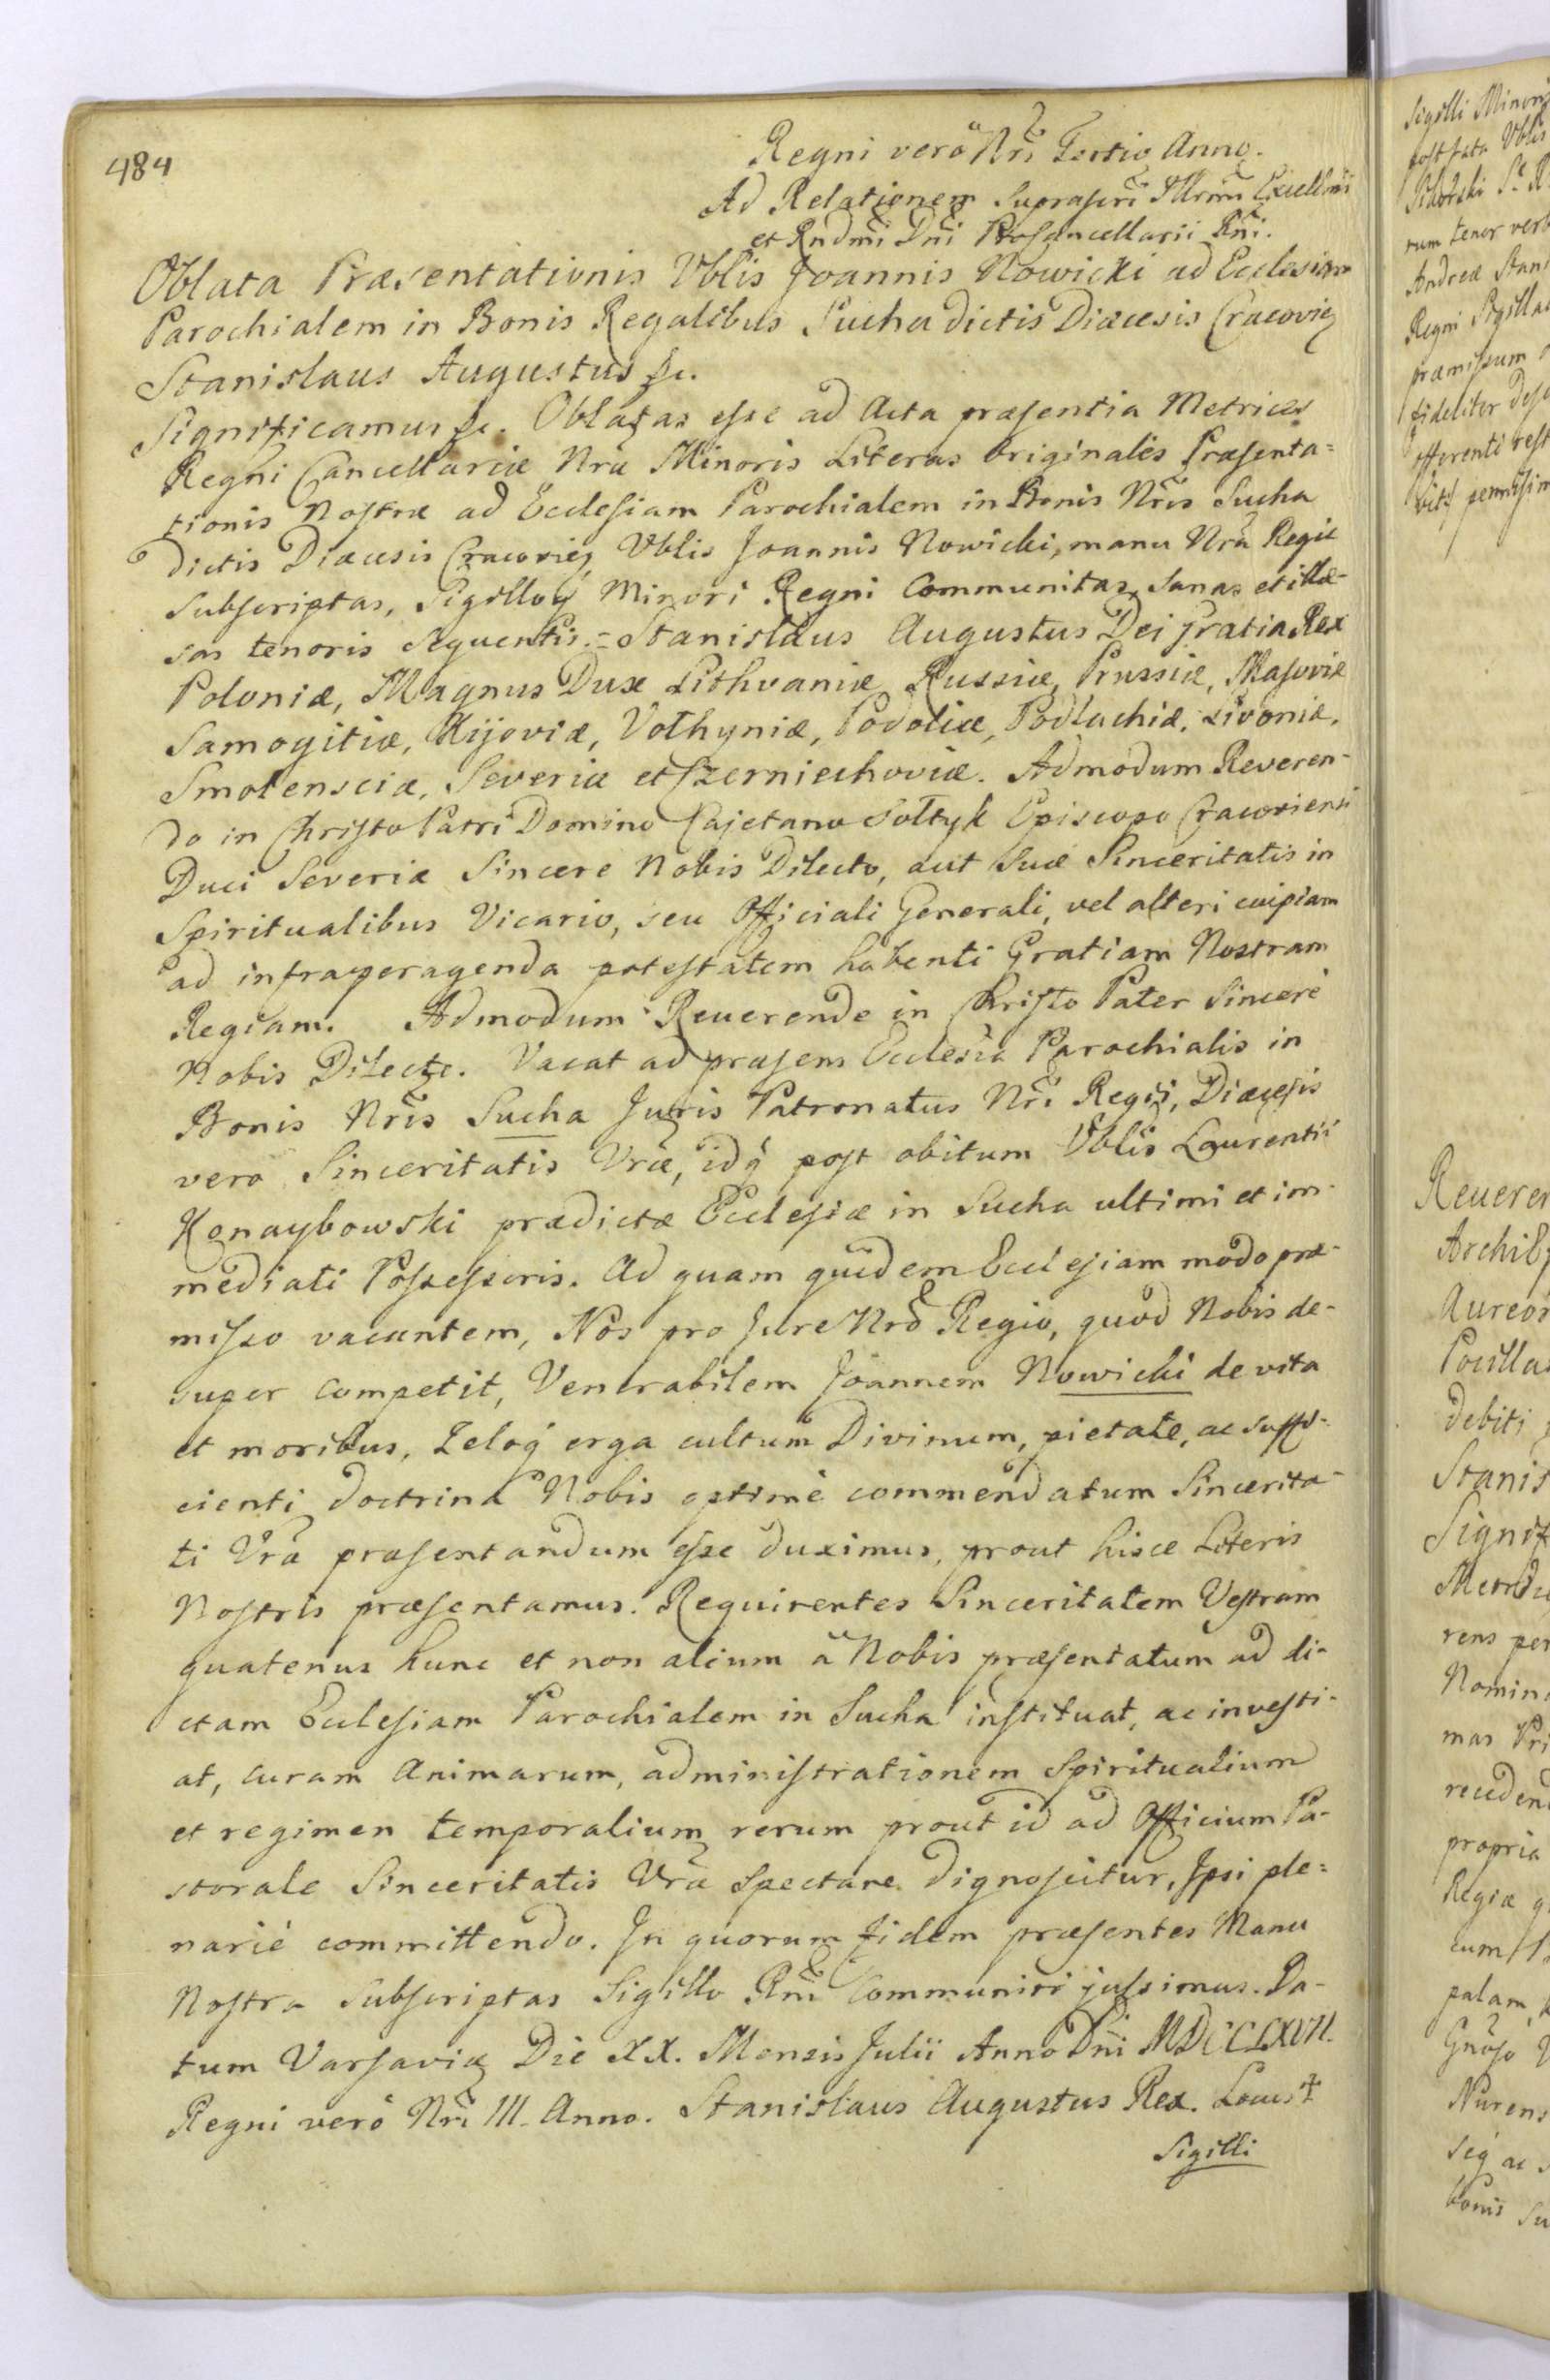 484
Regni verò Nr̃i Tertio Anno.
Ad Relationem Suprascri Illrmi Excellmi
et Rndmi Dni Procancellarii Rñi.
Oblata Præsentationis Vblis Joannis Nowicki ad Ecclesiam
Parochialem in Bonis Regalibus Sucha dictis Diæcesis Cracovię
Stanislaus Augustus &c.
Significamus &c. Oblatas esse ad Acta præsentia Metrices
Regni Cancellariæ Nrã Minoris Literas Originales Præsenta=
tionis Nostræ ad Ecclesiam Parochialem in Bonis Nris Sucha
dictis Diæcesis Cracovieñ Vblis Joannis Nowicki, manu Nrã Regie
Subscriptas, Sigilloq́ Minori Regni Communitas, Sanas et illæ-
sas tenoris sequentis.= Stanislaus Augustus Dei Gratia Rex
Poloniæ, Magnus Dux Lithvaniæ Russiæ, Prussiæ, Masoviæ
Samogitiæ, Kijoviæ, Volhyniæ, Podoliæ, Podlachiæ, Livoniæ,
Smolensciæ, Severiæ et Czerniechoviæ. Admodum Reveren-
do in Christo Patri Domino Cajetano Sołtyk Episcopo Cracoviensi
Duci Severiæ Sincere Nobis Dilecto, aut Suæ Sinceritatis in
Spiritualibus Vicario, seu Officiali Generali, vel alteri cuipiam
ad infraperagenda potestatem habenti Gratiam Nostram
Regiam. Admodum Reuerende in Christo Pater Sincerè
Nobis Dilecte. Vacat ad præsens Ecclesia Parochialis in
Bonis Nris Sucha Juris Patronatus Nri Regii, Diæcesis
vero Sinceritatis Vræ, idq́ post obitum Vblis Laurentii
Konaybowski prædictæ Ecclesiæ in Sucha ultimi et im-
mediati Possessoris. Ad quam quidem Ecclesiam modo præ-
misso vacantem, Nos pro Jure Nrõ Regio, quod Nobis de-
super competit, Venerabilem Joannem Nowicki de vita
et moribus, Zeloq́ erga cultum Divinum, pietate, ac suffi-
cienti doctrina Nobis optimè commendatum Sincerita-
ti Vrã præsentandum esse duximus, prout hisce Literis
Nostris præsentamus. Requirentes Sinceritatem Vestram
quatenus hunc et non alium à Nobis præsentatum ad di-
ctam Ecclesiam Parochialem in Sucha instituat, ac investi-
at, curam Animarum, administrationem Spiritualium
et regimen temporalium rerum prout id ad Officium Pa-
storale Sinceritatis Vrã Spectare dignoscitur, Ipsi ple=
nariè committendo. In quorum fidem præsentes Manu
Nostra Subscriptas Sigillo Rñi Communiri jussimus. Da-
tum Varsaviæ Die XX. Mensis Julii Anno Dni MDCCLXVII.
Regni verò Nri III. Anno. Stanislaus Augustus Rex. Locus +
Sigilli
Sigilli
post fata Vblis
rum tenor
Andreæ
Regni
præmissum
fideliter
Archi
Stanis
rens
mas
propria
Regiæ
palam
Bonis